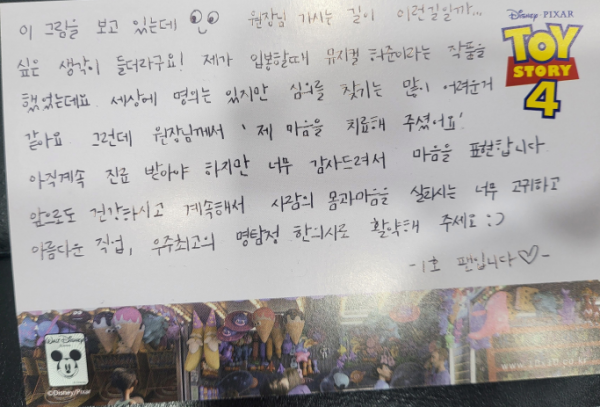 이 그림을 보고 있는데 원장님 가시는 길이 이런길일까...
싶은 생각이 들더라구요! 제가 입봉할때 뮤지컬 허준이라는 작품을
했었는데요 세상에 명의는 있지만 심의를 찾기는 많이 어려운거
같아요 그런데 원장님께서 '제 마음을 치료해 주셨어요!'
아직계속 진료 받아야 하지만 너무 감사드려서 마음을 표현합니다
앞으로도 건강하시고 계속해서 사람의 몸과마음을 살피시는 너무 고귀하고
아름다운 직업, 우주최고의 명탐정 한의사로 활약해 주세요 :)
-1호 팬입니다♡-
Disney · PIXAR
TOY
STORY
4
WALT DISNEY
©Disney/Pixar